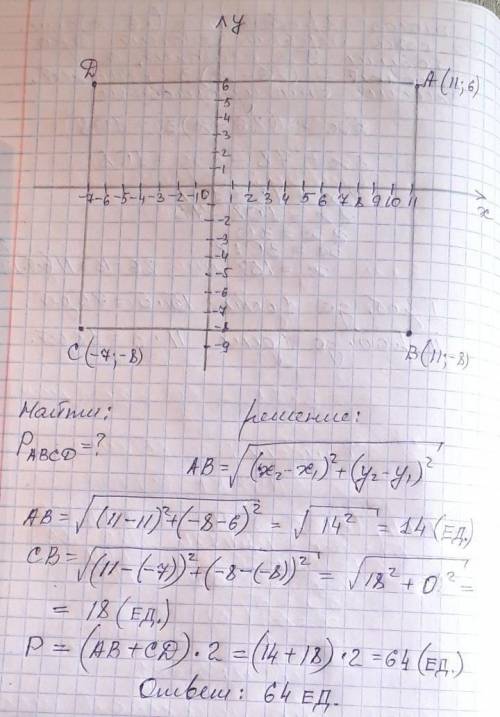 y
D
A (11; 6)
6
5
4
3
2
1
-7 -6 -5 -4 -3 -2 -1 0 1 2 3 4 5 6 7 8 9 10 11
x
-2
-3
-4
-5
-6
-7
-8
-9
C (-7; -8)
B (11; -8)
Найти: решение:
P_ABCD = ?
AB = √((x₂ - x₁)² + (y₂ - y₁)²)
AB = √((11 - 11)² + (-8 - 6)²) = √14² = 14 (ЕД.)
CB = √((11 - (-7))² + (-8 - (-8))²) = √(18² + 0²) =
= 18 (ЕД.)
P = (AB + CD) · 2 = (14 + 18) · 2 = 64 (ЕД.)
Ответ: 64 ЕД.